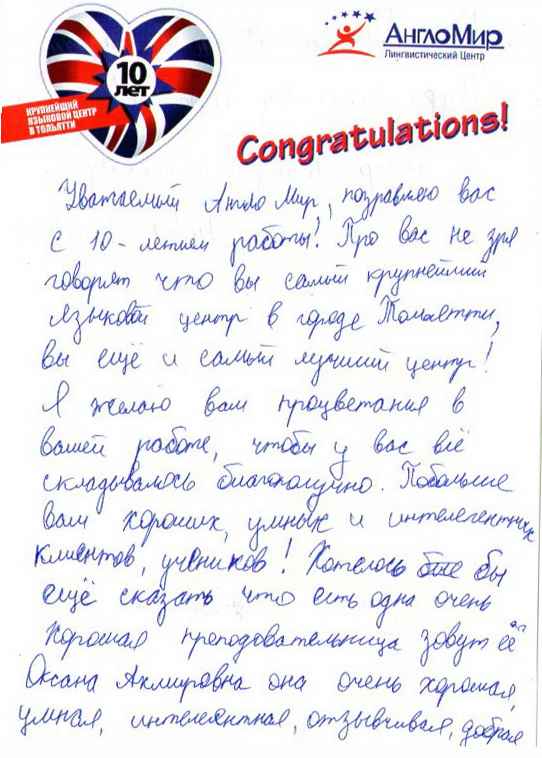 10
ЛЕТ
КРУПНЕЙШИЙ
ЯЗЫКОВОЙ ЦЕНТР
В ТОЛЬЯТТИ
АнглоМир
Лингвистический Центр
Congratulations!
Уважаемый Англо Мир, поздравляю вас
с 10-летием работы! Про вас не зря
говорят что вы самый крупнейший
языковой центр в городе Тольятти,
вы ещё и самый лучший центр!
Я желаю вам процветания в
вашей работе, чтобы у вас всё
складывалось благополучно. Побольше
вам хороших, умных и интелегентных
клиентов, учеников! Хотелось бы
ещё сказать что есть одна очень
хорошая преподовательница зовут её
Оксана она очень хорошая,
умная, интелегентная, отзывчивая, добрая